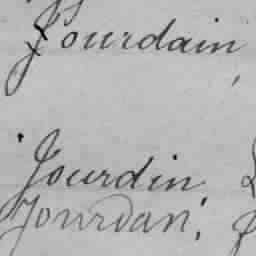 Jourdain,
Jourdin,
Jourdan,